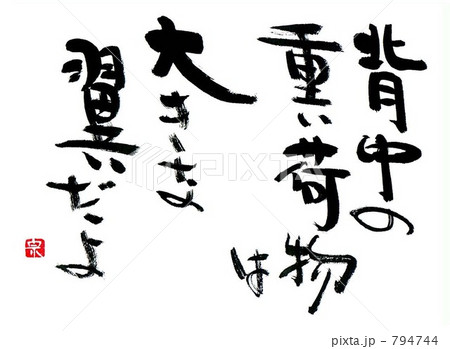 背中の
重い荷物
は
大きな
翼だよ
京
pixta.jp - 794744